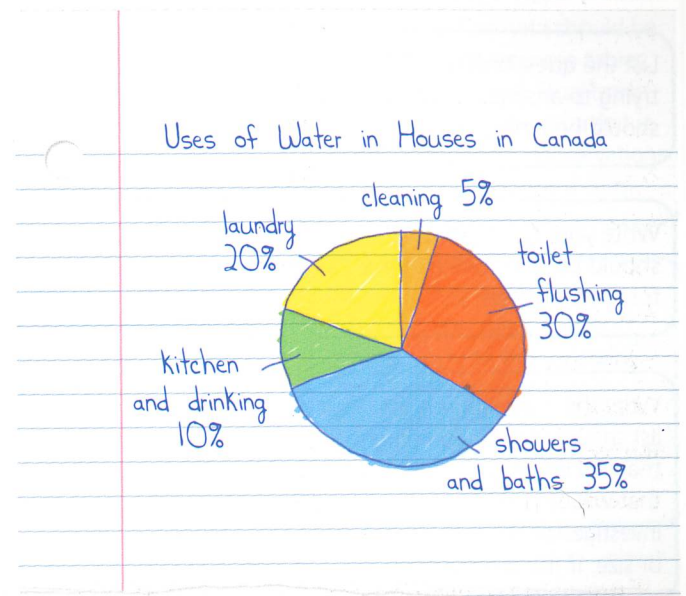 Uses of Water in Houses in Canada
cleaning 5%
laundry
20%
toilet
flushing
30%
kitchen
and drinking
10%
showers
and baths 35%